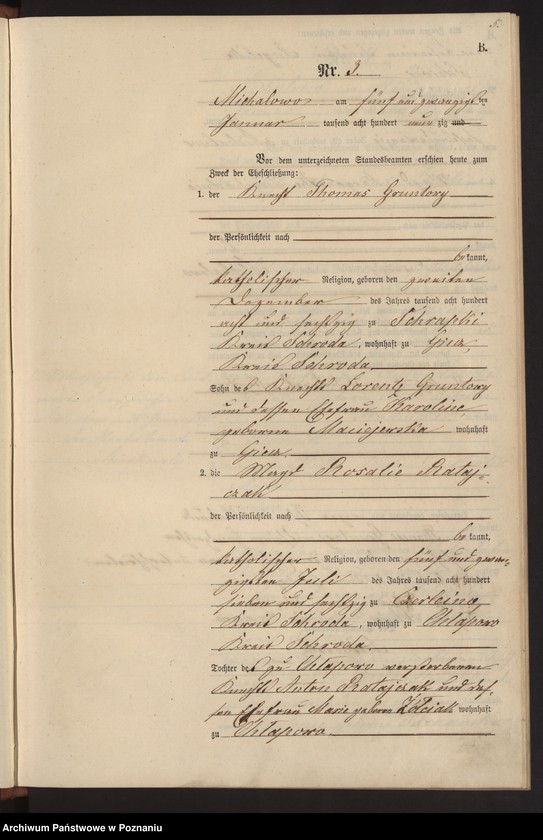 5.
B.
Nr. 3.
Michalowo am fünf und zwanzigsten
Januar tausend acht hundert neunzig und
Vor dem unterzeichneten Standesbeamten erschien heute zum
Zweck der Eheschließung:
1. der Knecht Thomas Gruntory
der Persönlichkeit nach
be kannt,
katholischer Religion, geboren den zweiten
Dezember des Jahres tausend acht hundert
acht und sechzig zu
Kreis Schroda, wohnhaft zu Giecz,
Kreis Schroda.
Sohn des Knechts Lorentz Gruntory
und dessen Ehefrau Karoline,
geborene Maciejewska wohnhaft
zu Giecz.
2. die Magd Rosalie Rataj-
czak
der Persönlichkeit nach
be kannt,
katholischer Religion, geboren den fünf und zwan-
zigsten Juli des Jahres tausend acht hundert
sieben und sechzig zu Czerleino,
Kreis Schroda, wohnhaft zu Chlapowo
Kreis Schroda.
Tochter des zu Chlapowo verstorbenen
Knechts Anton Ratajczak und des-
sen Ehefrau Marie geboren wohnhaft
zu Chlapowo.
Archiwum Państwowe w Poznaniu